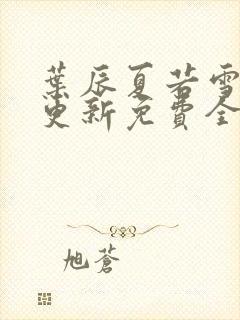 葉辰夏若雪
更新免費全
旭蒼